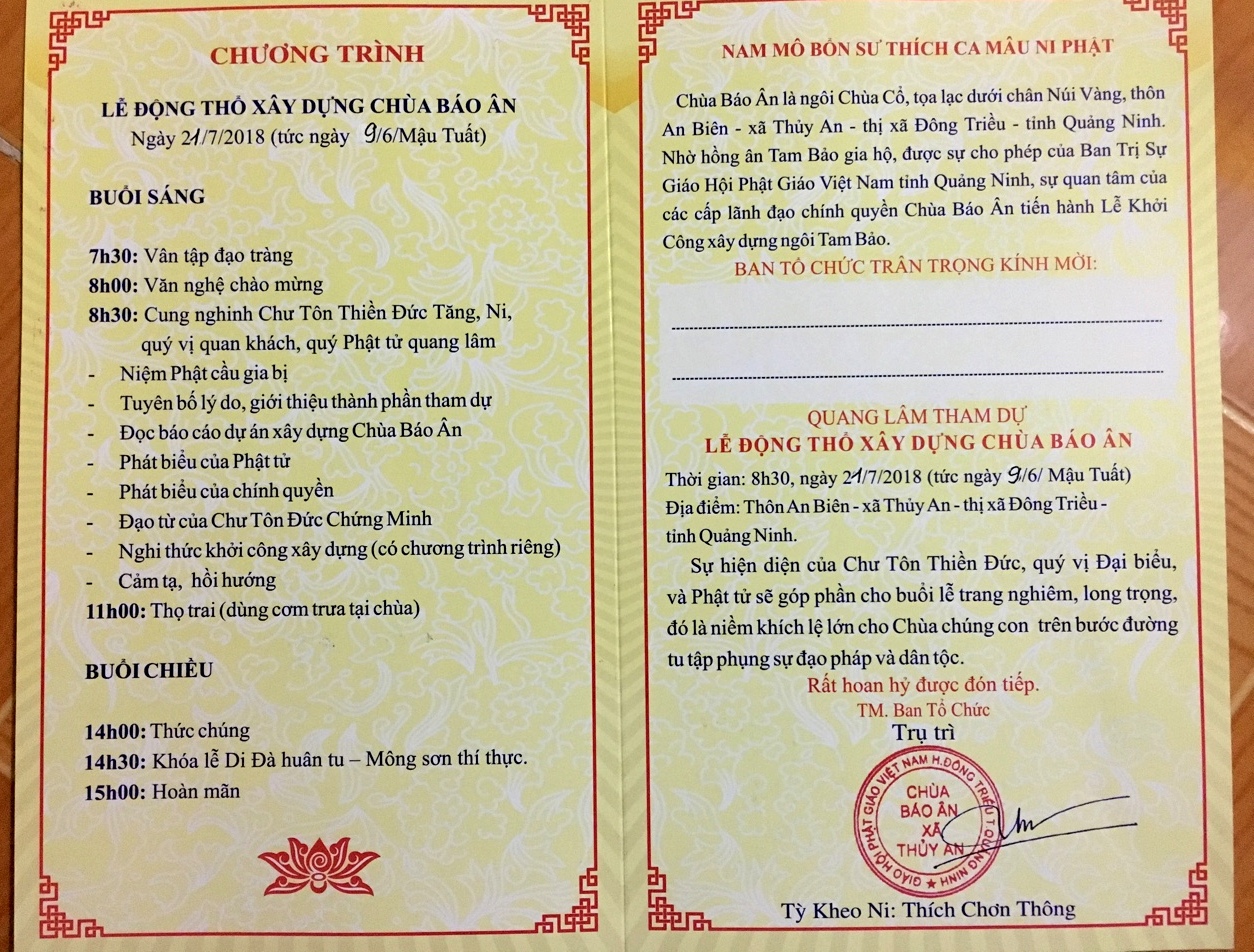 CHƯƠNG TRÌNH
LỄ ĐỘNG THỔ XÂY DỰNG CHÙA BÁO ÂN
Ngày 21/7/2018 (tức ngày 9/6/Mậu Tuất)
BUỔI SÁNG
7h30: Vân tập đạo tràng
8h00: Văn nghệ chào mừng
8h30: Cung nghinh Chư Tôn Thiền Đức Tăng, Ni,
quý vị quan khách, quý Phật tử quang lâm
- Niệm Phật cầu gia bị
- Tuyên bố lý do, giới thiệu thành phần tham dự
- Đọc báo cáo dự án xây dựng Chùa Báo Ân
- Phát biểu của Phật tử
- Phát biểu của chính quyền
- Đạo từ của Chư Tôn Đức Chứng Minh
- Nghi thức khởi công xây dựng (có chương trình riêng)
- Cảm tạ, hồi hướng
11h00: Thọ trai (dùng cơm trưa tại chùa)
BUỔI CHIỀU
14h00: Thức chúng
14h30: Khóa lễ Di Đà huân tu – Mông sơn thí thực.
15h00: Hoàn mãn
NAM MÔ BỔN SƯ THÍCH CA MÂU NI PHẬT
Chùa Báo Ân là ngôi Chùa Cổ, tọa lạc dưới chân Núi Vàng, thôn
An Biên - xã Thủy An - thị xã Đông Triều - tỉnh Quảng Ninh.
Nhờ hồng ân Tam Bảo gia hộ, được sự cho phép của Ban Trị Sự
Giáo Hội Phật Giáo Việt Nam tỉnh Quảng Ninh, sự quan tâm của
các cấp lãnh đạo chính quyền Chùa Báo Ân tiến hành Lễ Khởi
Công xây dựng ngôi Tam Bảo.
BAN TỔ CHỨC TRÂN TRỌNG KÍNH MỜI:
QUANG LÂM THAM DỰ
LỄ ĐỘNG THỔ XÂY DỰNG CHÙA BÁO ÂN
Thời gian: 8h30, ngày 21/7/2018 (tức ngày 9/6/ Mậu Tuất)
Địa điểm: Thôn An Biên - xã Thủy An - thị xã Đông Triều -
tỉnh Quảng Ninh.
Sự hiện diện của Chư Tôn Thiền Đức, quý vị Đại biểu,
và Phật tử sẽ góp phần cho buổi lễ trang nghiêm, long trọng,
đó là niềm khích lệ lớn cho Chùa chúng con trên bước đường
tu tập phụng sự đạo pháp và dân tộc.
Rất hoan hỷ được đón tiếp.
TM. Ban Tổ Chức
Trụ trì
GIÁO HỘI PHẬT GIÁO VIỆT NAM H.ĐÔNG TRIỀU T.QUẢNG NINH
CHÙA
BÁO ÂN
XÃ
THỦY AN
Tỳ Kheo Ni: Thích Chơn Thông